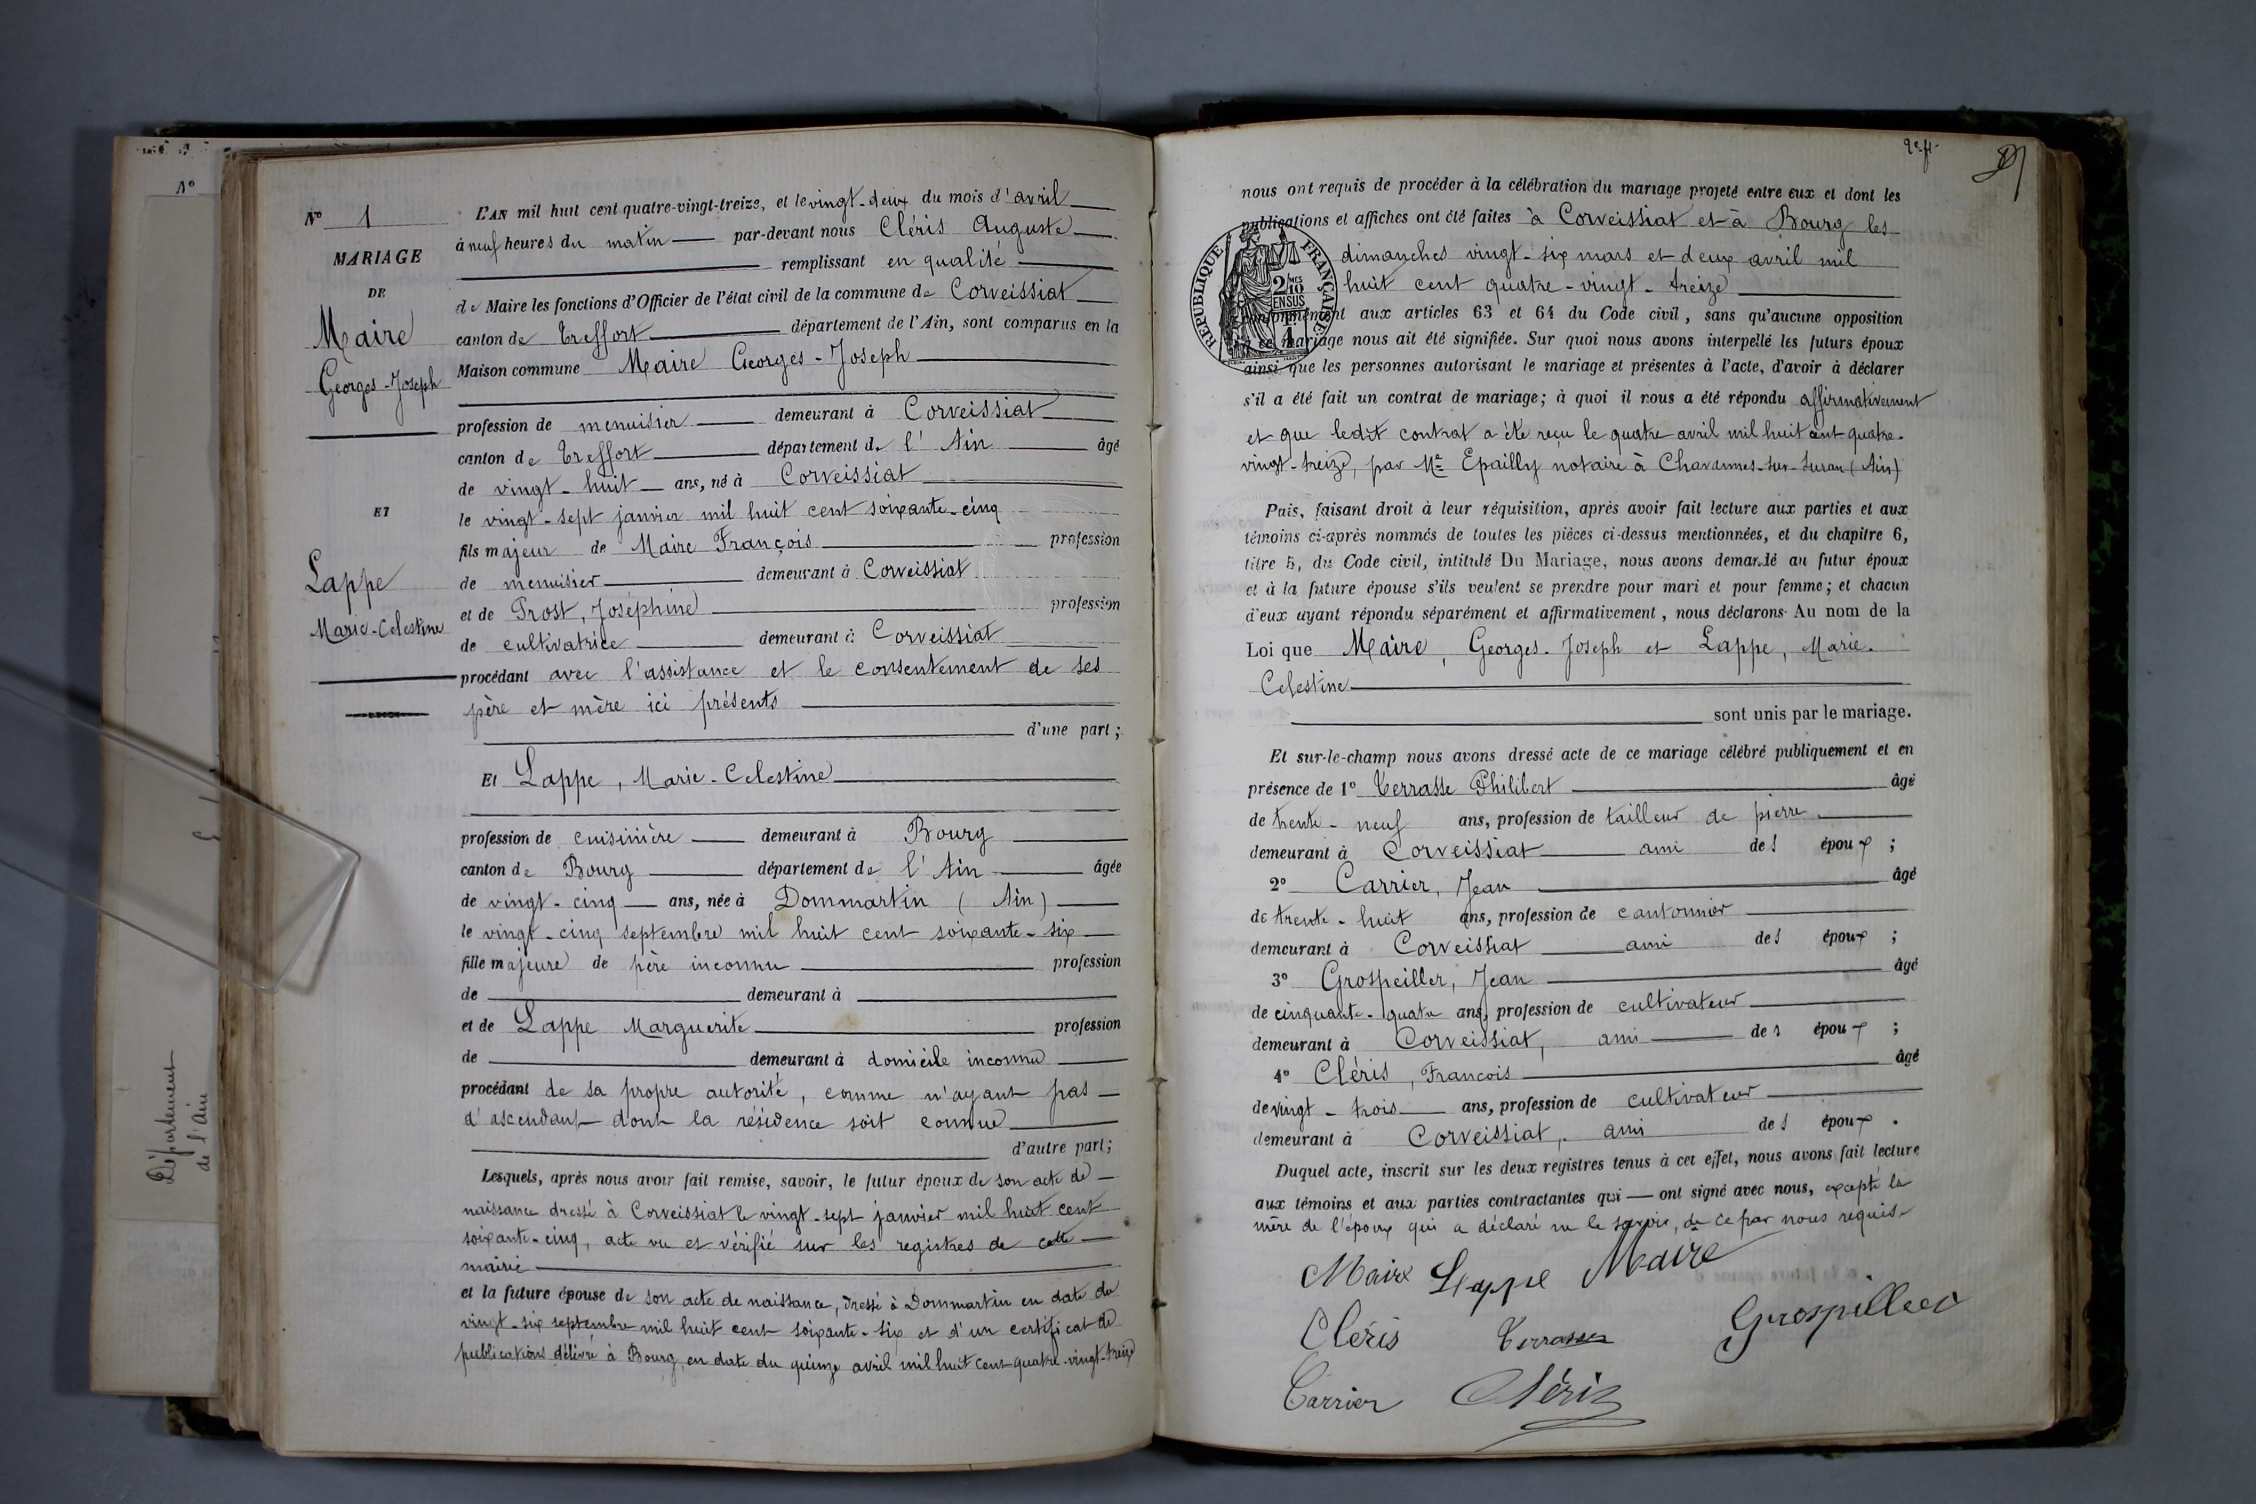 Nº
Département
de l'Ain
Nº 1
MARIAGE
DE
Maire
Georges-Joseph
ET
Lappe
Marie-Celestine
L'AN mil huit cent quatre-vingt-treize, et le vingt-deux du mois d'avril
à neuf heures du matin par-devant nous Cléris Auguste
remplissant en qualité
de Maire les fonctions d'Officier de l'état civil de la commune de Corveissiat
canton de Treffort département de l'Ain, sont comparus en la
Maison commune Maire Georges-Joseph
profession de menuisier demeurant à Corveissiat
canton de Treffort département de l'Ain âgé
de vingt-huit ans, né à Corveissiat
le vingt-sept janvier mil huit cent soixante-cinq
fils majeur de Maire François profession
de menuisier demeurant à Corveissiat
et de Prost, Joséphine profession
de cultivatrice demeurant à Corveissiat
procédant avec l'assistance et le consentement de ses
père et mère ici présents
d'une part;
Et Lappe, Marie-Celestine
profession de cuisinière demeurant à Bourg
canton de Bourg département de l'Ain âgée
de vingt-cinq ans, née à Dommartin (Ain)
le vingt-cinq septembre mil huit cent soixante-six
fille majeure de père inconnu profession
de demeurant à
et de Lappe Marguerite profession
de demeurant à domicile inconnu
procédant de sa propre autorité, comme n'ayant pas
d'ascendant dont la résidence soit connue
d'autre part;
Lesquels, après nous avoir fait remise, savoir, le futur époux de son acte de
naissance dressé à Corveissiat le vingt-sept janvier mil huit cent
soixante-cinq, acte vu et vérifié sur les registres de cette
mairie
et la future épouse de son acte de naissance, dressé à Dommartin en date du
vingt-six septembre mil huit cent soixante-six et d'un certificat de
publications délivré à Bourg en date du quinze avril mil huit cent quatre-vingt-treize
nous ont requis de procéder à la célébration du mariage projeté entre eux et dont les
publications et affiches ont été faites à Corveissiat et à Bourg les
dimanches vingt-six mars et deux avril mil
huit cent quatre-vingt-treize
RÉPUBLIQUE FRANÇAISE
2/10 EN SUS
conformément aux articles 63 et 64 du Code civil, sans qu'aucune opposition
à ce mariage nous ait été signifiée. Sur quoi nous avons interpellé les futurs époux
ainsi que les personnes autorisant le mariage et présentes à l'acte, d'avoir à déclarer
s'il a été fait un contrat de mariage; à quoi il nous a été répondu affirmativement
et que ledit contrat a été reçu le quatre avril mil huit cent quatre-
vingt-treize, par Me Epailly notaire à Chavannes-sur-Suran (Ain)
Puis, faisant droit à leur réquisition, après avoir fait lecture aux parties et aux
témoins ci-après nommés de toutes les pièces ci-dessus mentionnées, et du chapitre 6,
titre 5, du Code civil, intitulé Du Mariage, nous avons demandé au futur époux
et à la future épouse s'ils veulent se prendre pour mari et pour femme; et chacun
d'eux ayant répondu séparément et affirmativement, nous déclarons Au nom de la
Loi que Maire, Georges-Joseph et Lappe, Marie-
Celestine
sont unis par le mariage.
Et sur-le-champ nous avons dressé acte de ce mariage célébré publiquement et en
présence de 1º Terrasse Philibert âgé
de trente-neuf ans, profession de tailleur de pierre
demeurant à Corveissiat ami des époux;
2º Carrier, Jean âgé
de trente-huit ans, profession de cantonnier
demeurant à Corveissiat ami des époux;
3º Grospeiller, Jean âgé
de cinquante-quatre ans, profession de cultivateur
demeurant à Corveissiat, ami des époux;
4º Cléris, Francois âgé
de vingt-trois ans, profession de cultivateur
demeurant à Corveissiat, ami des époux.
Duquel acte, inscrit sur les deux registres tenus à cet effet, nous avons fait lecture
aux témoins et aux parties contractantes qui ont signé avec nous, excepté la
mère de l'époux qui a déclaré ne le savoir, de ce par nous requis
Maire Lappe Maire
Cléris Terrasse Grospellier
Carrier Cléris